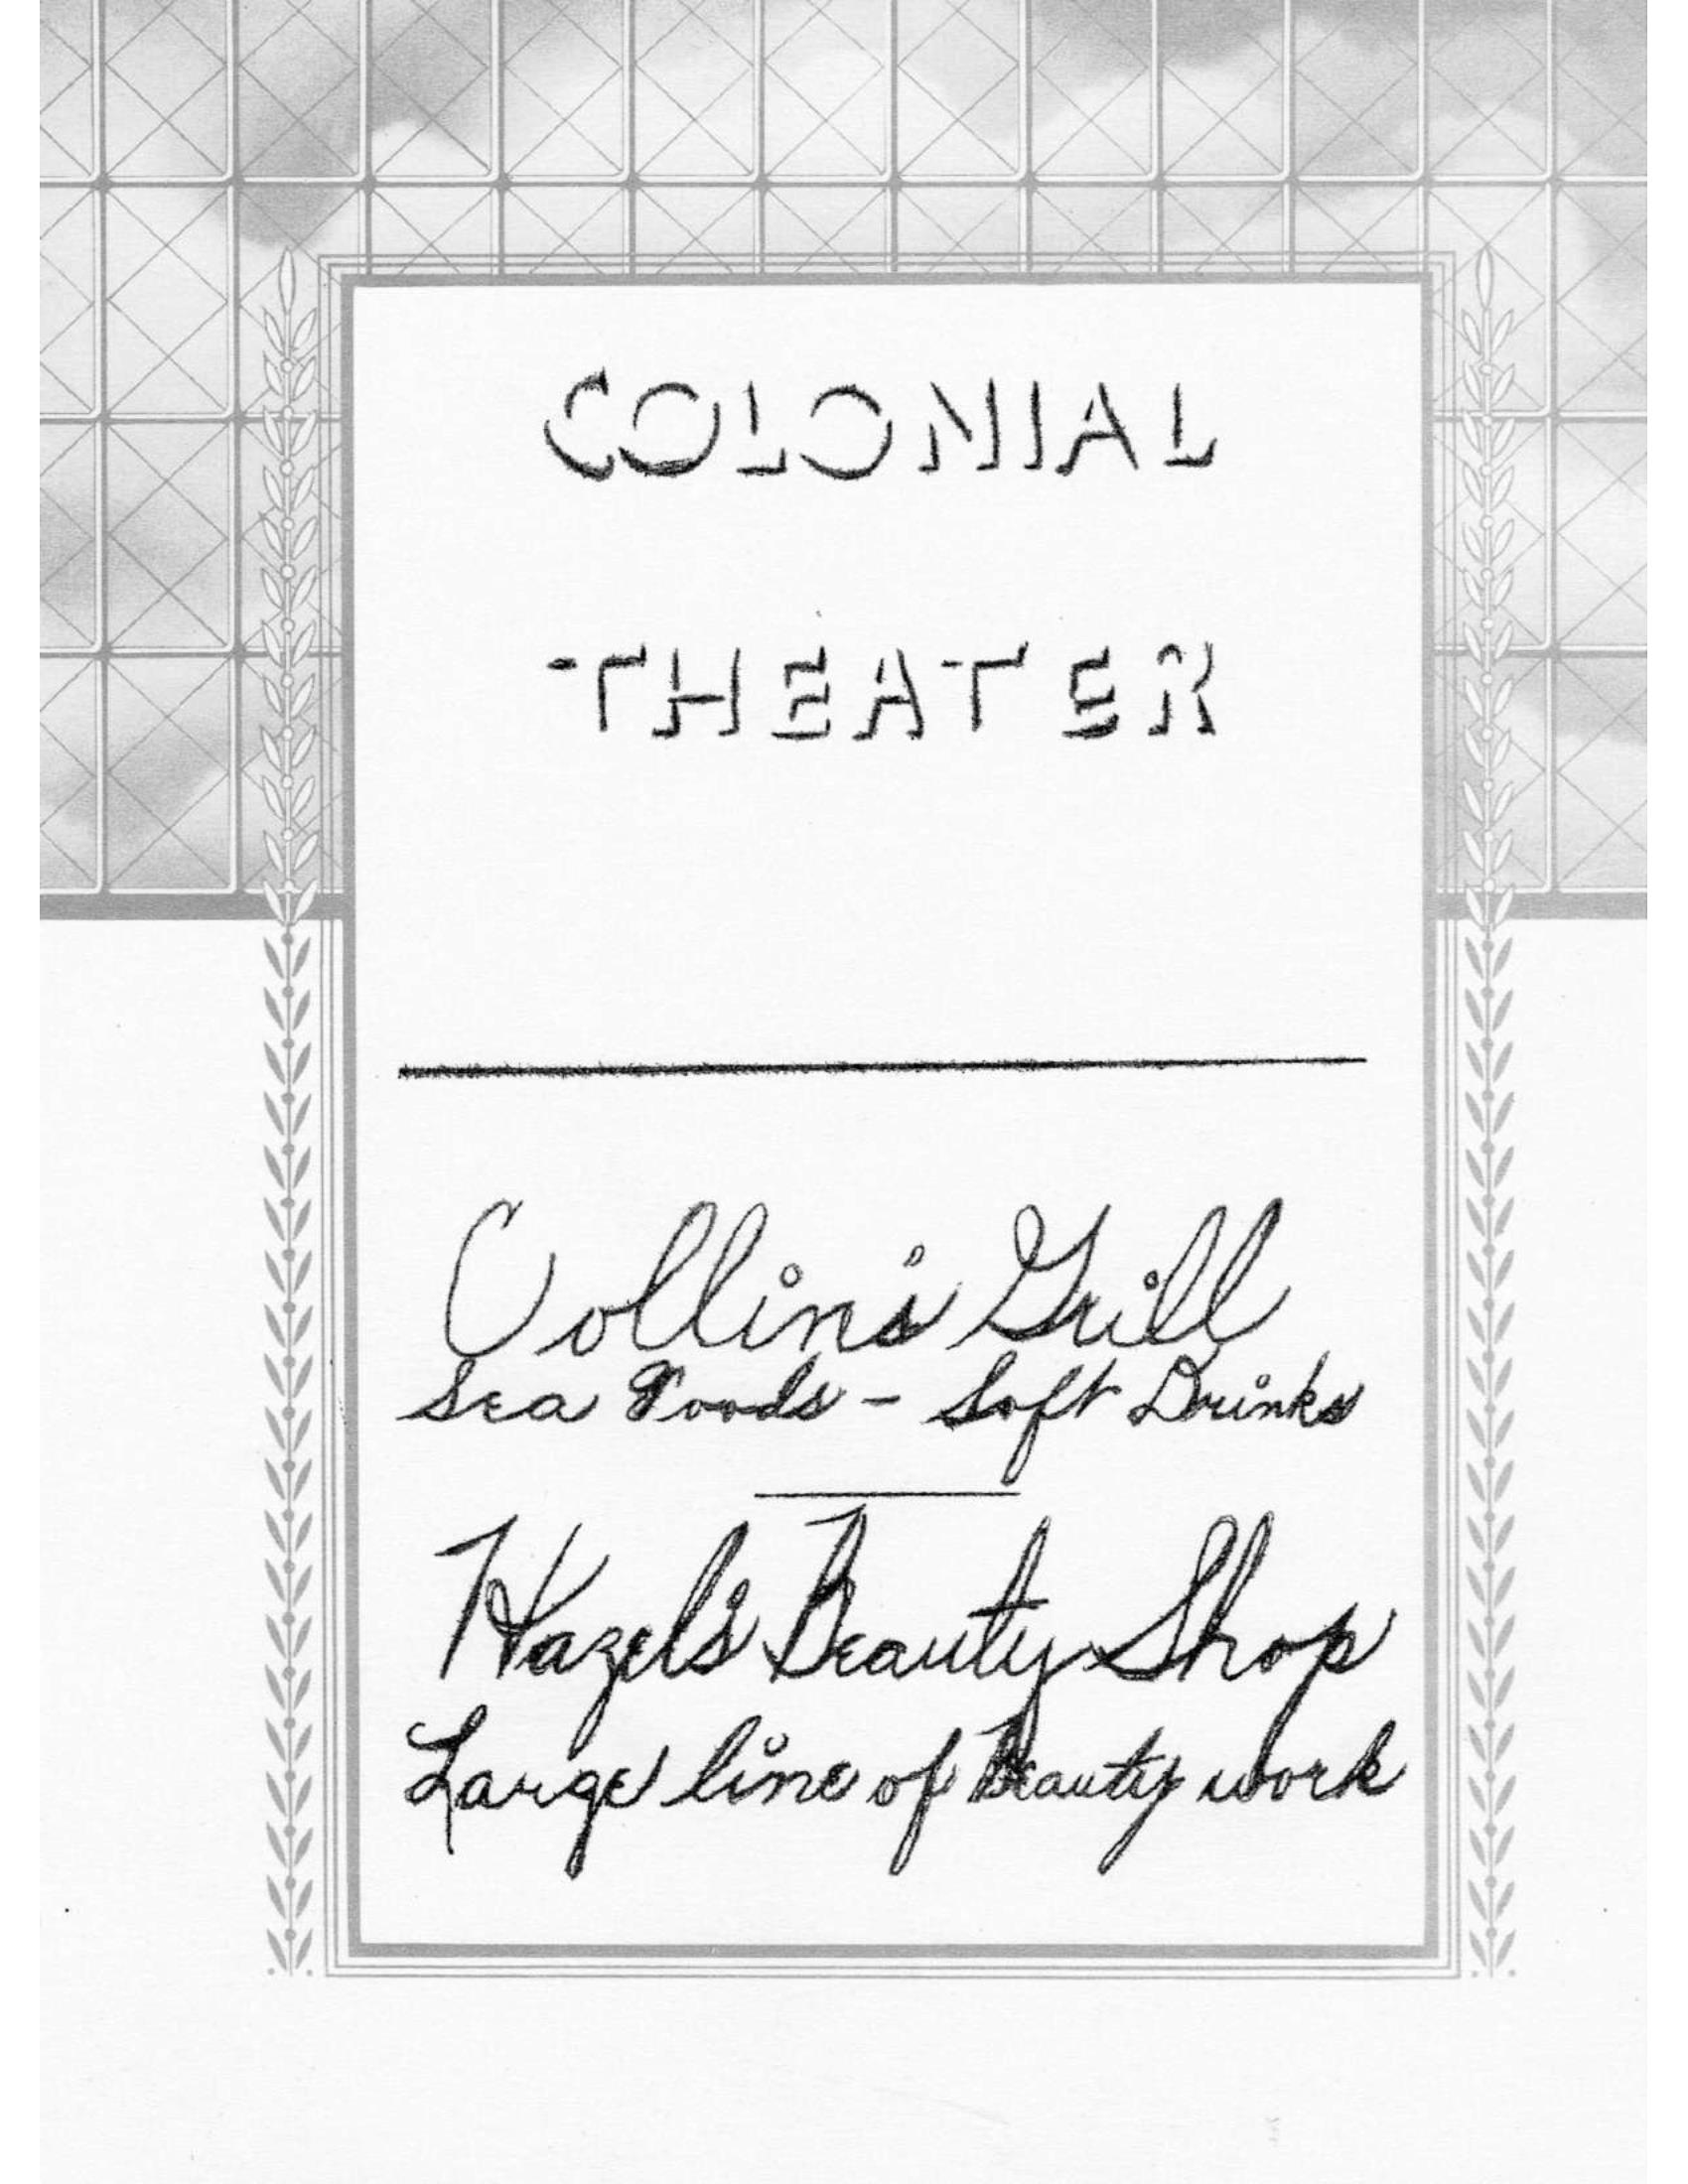 COLONIAL
THEATER
Collin's Grill
Sea Foods - Soft Drinks
Hazel's Beauty Shop
Large line of Beauty work